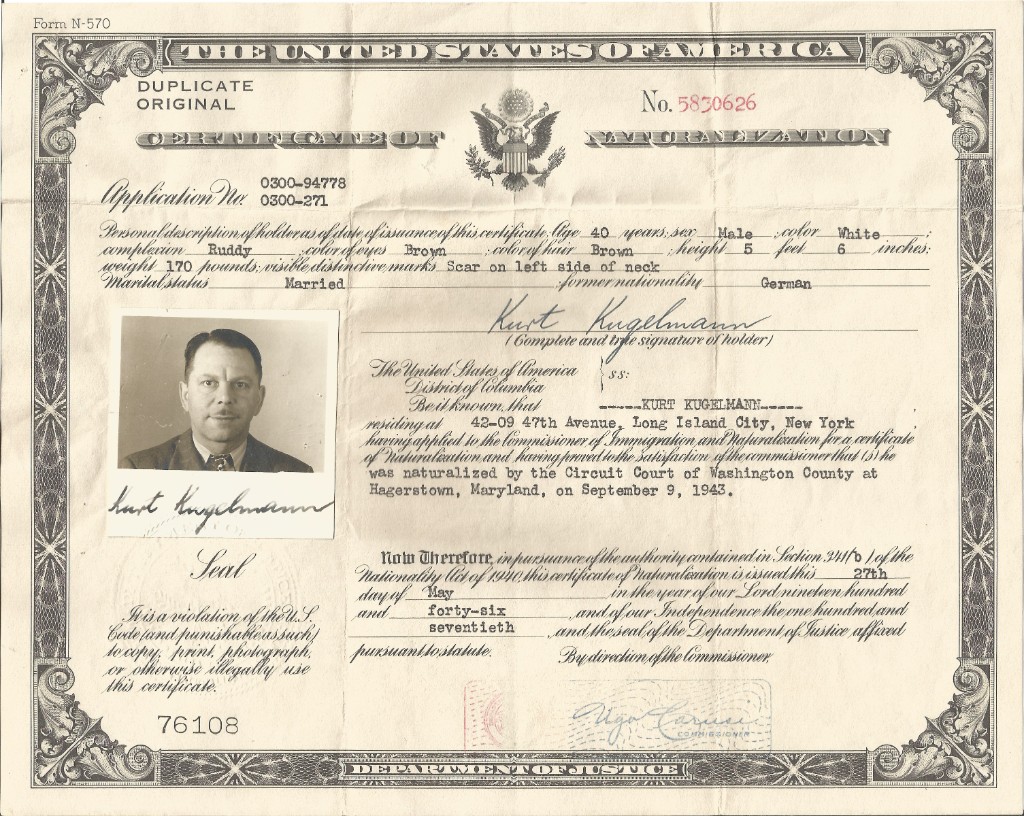 Form N-570
THE UNITED STATES OF AMERICA
DUPLICATE
ORIGINAL
No. 5830626
CERTIFICATE OF NATURALIZATION
Application No. 0300-94778
0300-271
Personal description of holder as of date of issuance of this certificate: Age 40 years; sex Male ; color White ;
complexion Ruddy ; color of eyes Brown ; color of hair Brown ; height 5 feet 6 inches;
weight 170 pounds; visible distinctive marks Scar on left side of neck
Marital status Married ; former nationality German
Kurt Kugelmann
(Complete and true signature of holder)
The United States of America
District of Columbia
} ss:
Be it known, that -----KURT KUGELMANN-----
residing at 42-09 47th Avenue, Long Island City, New York
having applied to the Commissioner of Immigration and Naturalization for a certificate
of Naturalization and having proved to the Satisfaction of the commissioner that (s)he
was naturalized by the Circuit Court of Washington County at
Hagerstown, Maryland, on September 9, 1943.
Kurt Kugelmann
Seal
It is a violation of the U.S.
Code (and punishable as such)
to copy, print, photograph,
or otherwise illegally use
this certificate.
76108
Now Therefore, in pursuance of the authority contained in Section 341(b) of the
Nationality Act of 1940, this certificate of Naturalization is issued this 27th
day of May in the year of our Lord nineteen hundred
and forty-six and of our Independence the one hundred and
seventieth and the seal of the Department of Justice affixed
pursuant to statute. By direction of the Commissioner.
Ugo Carusi
COMMISSIONER
DEPARTMENT OF JUSTICE